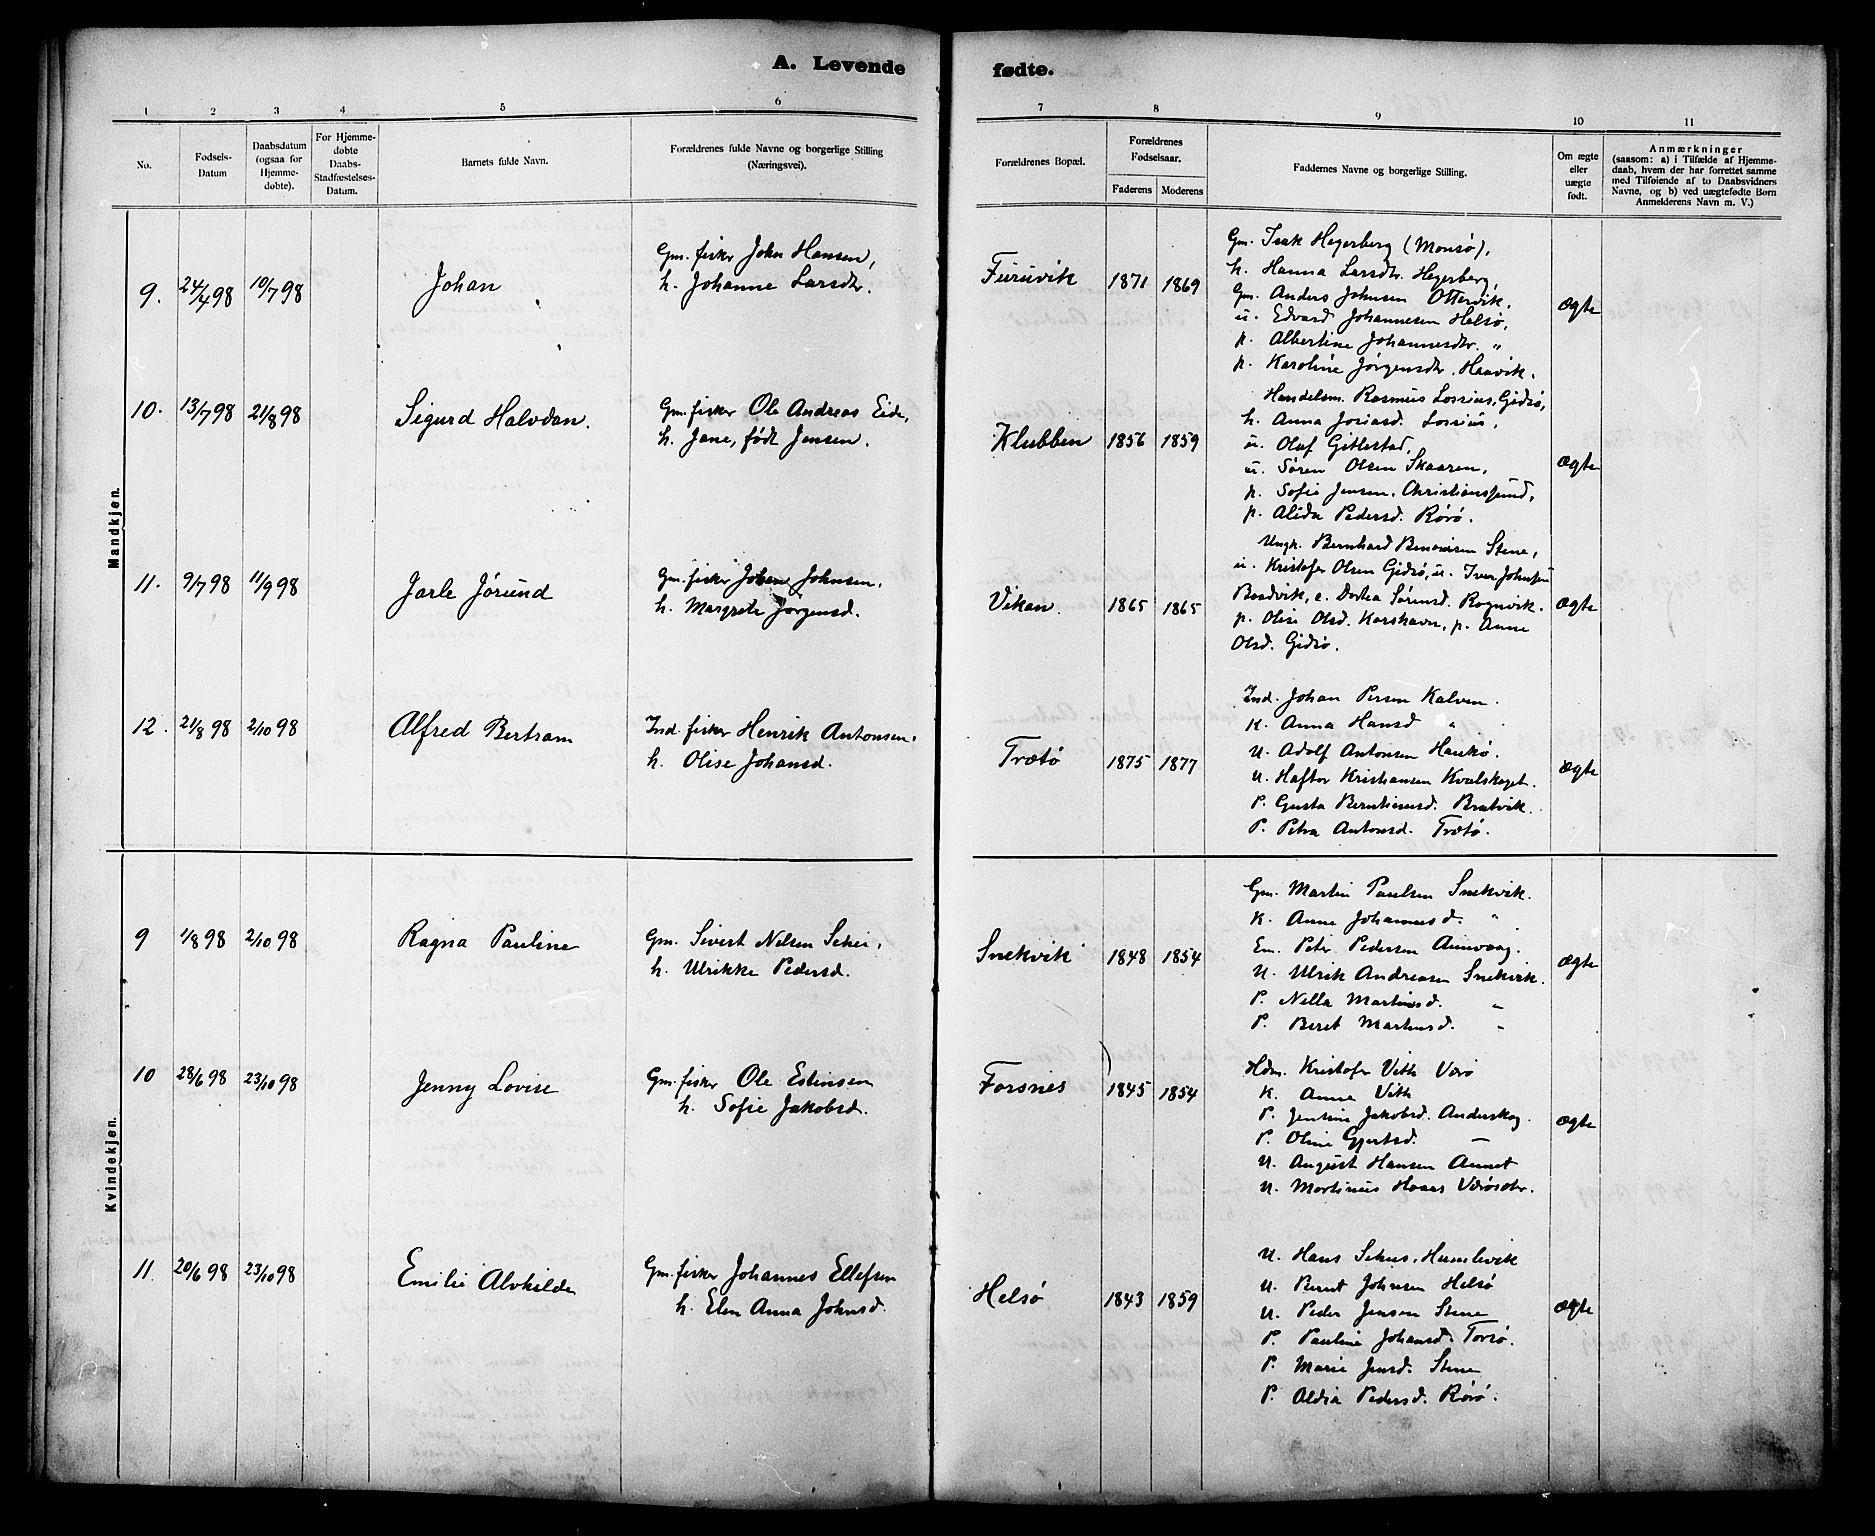 A. Levende fødte.
1 2 3 4 5 6 7 8 9 10 11
No.
Fødsels-
Datum
Daabsdatum
(ogsaa for
Hjemme-
døbte).
For Hjemme-
døbte
Daabs-
Stadfæstelses-
Datum.
Barnets fulde Navn.
Forældrenes fulde Navne og borgerlige Stilling
(Næringsvei).
Forældrenes Bopæl.
Forældrenes
Fødselsaar.
Faderens Moderens
Faddernes Navne og borgerlige Stilling.
Om ægte
eller
uægte
født.
Anmærkninger
(saasom: a) i Tilfælde af Hjemme-
daab, hvem der har forrettet samme
med Tilføiende af to Daabsvidners
Navne, og b) ved uægtefødte Børn
Anmelderens Navn m. V.)
Mandkjøn.
9. 24/4 98 10/7 98 Johan
Gm. fisker John Hansen,
h. Johanne Larsdtr.
Furuvik 1871 1869
Gm. Isak Hegerberg (Monsø),
h. Hanna Larsdtr. Hegerberg,
Gm. Anders Johnsen Ottervik,
u. Edvard Johannesen Helsø,
p. Albertine Johannesdtr. "
p. Karoline Jørgensdtr. Haavik.
Ægte
10. 13/7 98 21/8 98 Sigurd Halvdan.
Gm. fisker Ole Andreas Eide,
h. Jane, født Jensen.
Klubben 1856 1859
Handelsm. Rasmus Lossius, Gidsø,
h. Anna Josiasd. Lossius,
u. Olaf Gittlestad,
u. Søren Olsen Skaaren,
p. Sofie Jensen, Christianssund,
p. Alida Pedersd. Rørø.
Ægte
11. 9/7 98 11/9 98 Jarle Jørund
Gm. fisker Johan Johnsen,
h. Margrete Jørgensd.
Vikan. 1865 1865
Ungk. Bernhard Benoniisen Stene,
u. Kristofer Olsen Gidsø, u. Iver Johnsen
Bradvik, e. Dortea Sørensd. Rognvik.
p. Olise Olsd. Korshavn, p. Anne
Olsd. Gidsø.
Ægte
12. 21/8 98 2/10 98 Alfred Bertram
Ind. fisker Henrik Antonsen,
h. Olise Johansd.
Trætø 1875 1877
Ind. Johan Persen Kalven.
K. Anna Hansd "
U. Adolf Antonsen Haukø.
U. Haftor Kristiansen Kvalskaget.
P. Gusta Berntinusd. Bratvik.
P. Petra Antonsd. Trætø.
Ægte
Kvindekjøn.
9 1/8 98 2/10 98 Ragna Pauline
Gm. Sivert Nilsen Schei,
h. Ulrikke Pedersd.
Snekvik 1848 1854
Gm. Martin Paulsen Snekvik.
K. Anne Johannesd. "
Em. Peter Pedersen Aunvaag.
U. Ulrik Andreasen Snekvik.
P. Nella Martinusd. "
P. Beret Martinusd. "
Ægte
10 28/6 98 23/10 98 Jenny Lovise
Gm. fisker Ole Estensen
h. Sofie Jakobsd.
Forsnes 1845 1854
Hdm. Kristofer Vith Værø
K. Anne Vith
P. Jensine Jakobsd. Anderskog.
P. Oline Gjertsd. —
U. August Hansen Aunet
U. Martinus Haas Værøsdtr.
Ægte
11. 20/6 98 23/10 98 Emilie Alvhilde
Gm. fisker Johannes Ellefsen
h. Elen Anna Johnsd.
Helsø 1843 1859
U. Hans Schus. Humlevik
U. Bernt Johnsen Helsø
U. Peder Jensen Stene
P. Pauline Johansd. Torsø.
P. Marie Jensd. Stene
P. Aldia Pedersd. Rørø.
Ægte